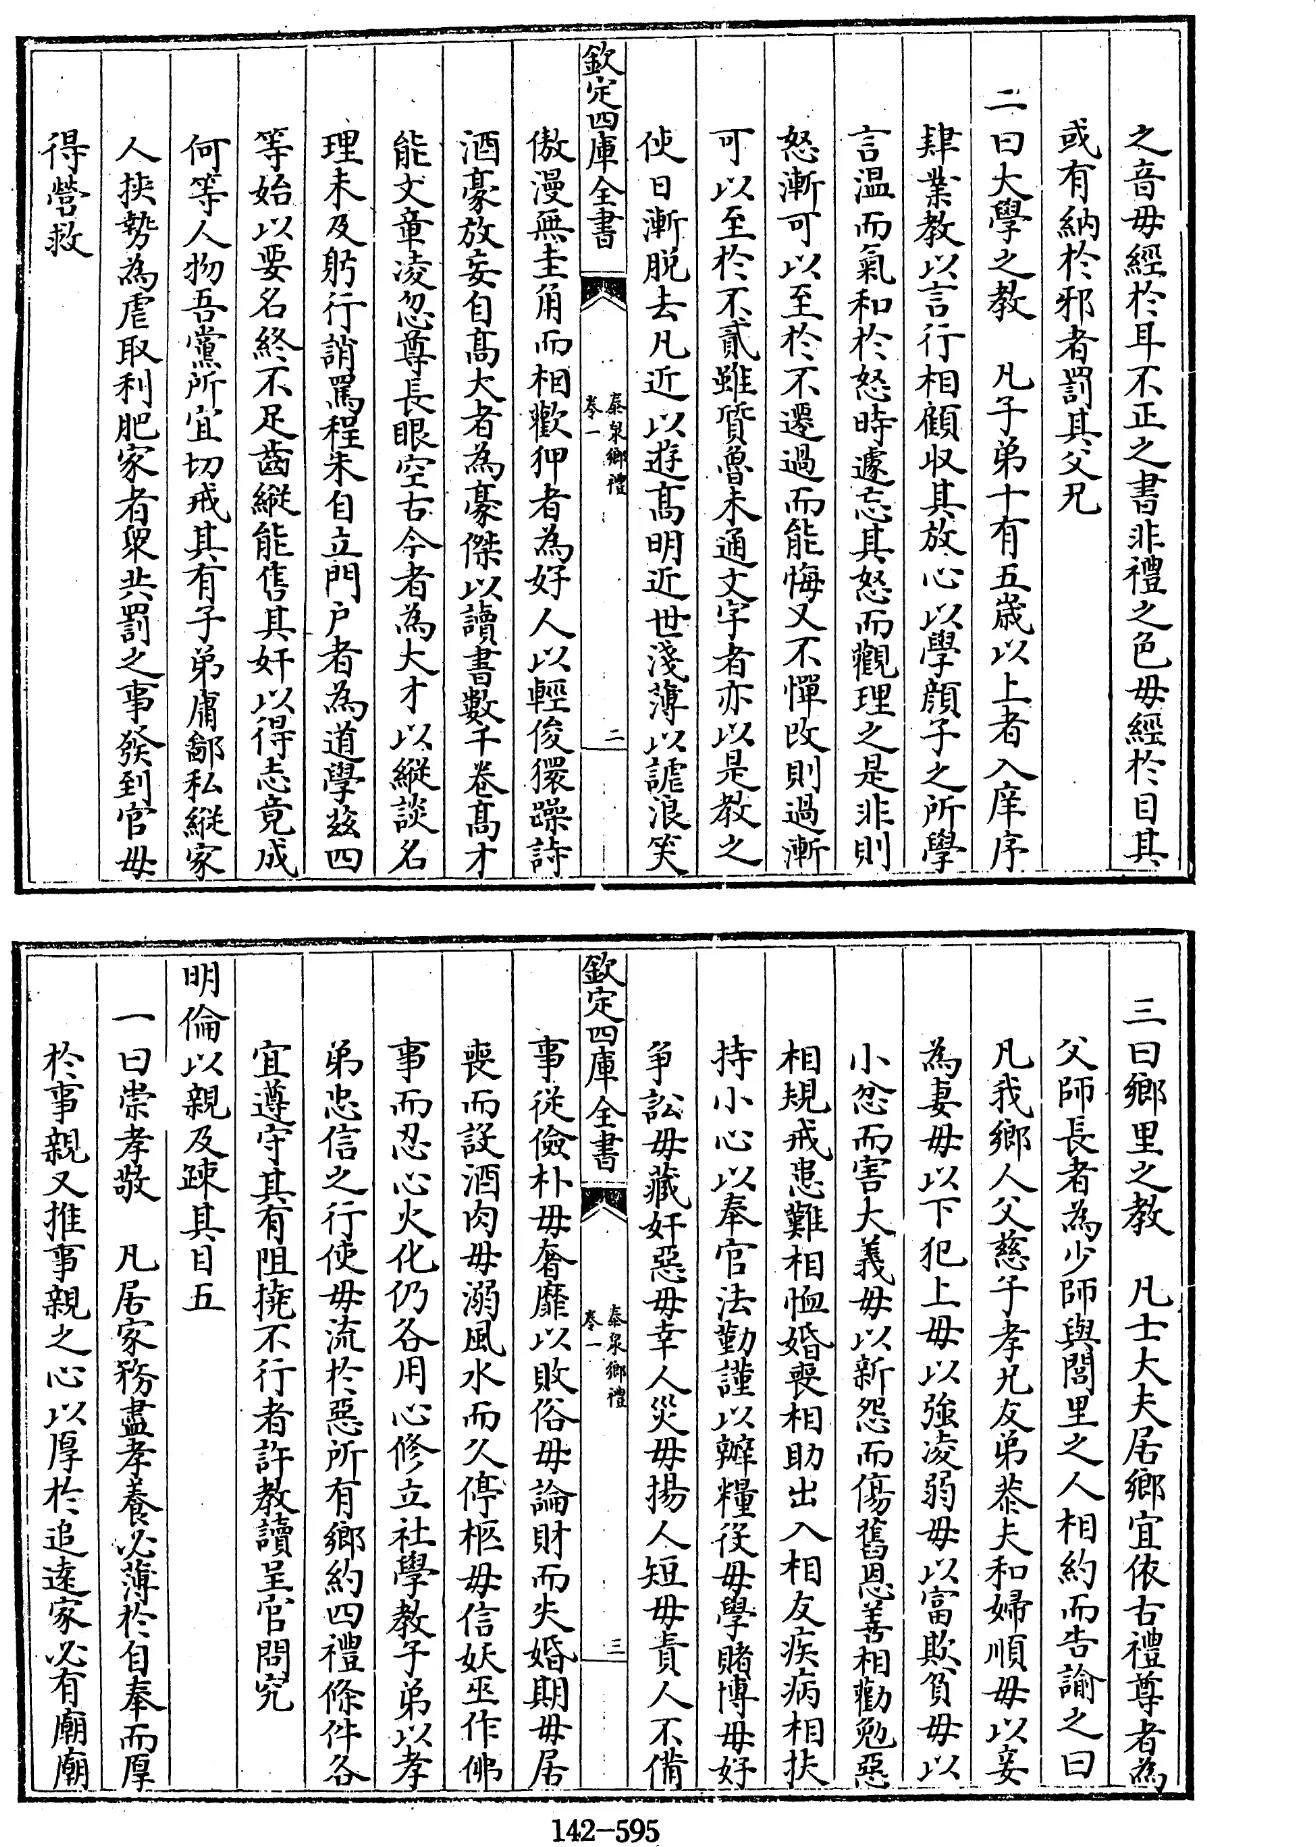 之音毋經於耳不正之書非禮之色毋經於目其
或有納於邪者罰其父兄
二曰大學之教　凡子弟十有五歲以上者入庠序
肄業教以言行相顧收其放心以學顔子之所學
言溫而氣和於怒時遽忘其怒而觀理之是非則
怒漸可以至於不遷過而能悔又不憚改則過漸
可以至於不貳雖質魯未通文字者亦以是教之
使日漸脱去凡近以遊髙明近世淺薄以謔浪笑
欽定四庫全書
泰泉鄉禮
卷一
二
傲漫無圭角而相歡狎者為好人以輕俊儇躁詩
酒豪放妄自髙大者為豪傑以讀書數千卷髙才
能文章凌忽尊長眼空古今者為大才以縱談名
理未及躬行誚罵程朱自立門户者為道學兹四
等始以要名終不足齒縱能售其奸以得志竟成
何等人物吾黨所宜切戒其有子弟庸鄙私縱家
人挾勢為虐取利肥家者衆共罰之事發到官毋
得營救
三曰鄉里之教　凡士大夫居鄉宜依古禮尊者為
父師長者為少師與閭里之人相約而告諭之曰
凡我鄉人父慈子孝兄友弟恭夫和婦順毋以妾
為妻毋以下犯上毋以強凌弱毋以富欺貧毋以
小忿而害大義毋以新怨而傷舊恩善相勸勉惡
相規戒患難相恤婚喪相助出入相友疾病相扶
持小心以奉官法勤謹以辦糧役毋學賭博毋好
爭訟毋藏奸惡毋幸人災毋揚人短毋責人不備
欽定四庫全書
泰泉鄉禮
卷一
三
事從儉朴毋奢靡以敗俗毋論財而失婚期毋居
喪而設酒肉毋溺風水而久停柩毋信妖巫作佛
事而忍心火化仍各用心修立社學教子弟以孝
弟忠信之行使毋流於惡所有鄉約四禮條件各
宜遵守其有阻撓不行者許教讀呈官問究
明倫以親及疎其目五
一曰崇孝敬　凡居家務盡孝養必薄於自奉而厚
於事親又推事親之心以厚於追遠家必有廟廟
142-595